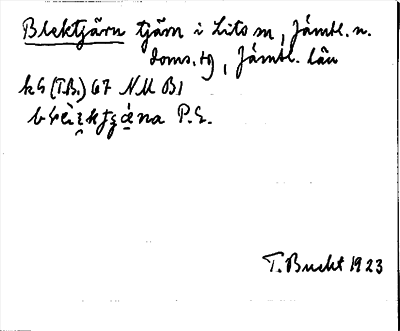 Blektjärn tjärn i Lits sn, Jämtl. n.
doms. tg, Jämtl. län
kS (T.B.) 67 NU B1
P.E.
T. Bucht 1923